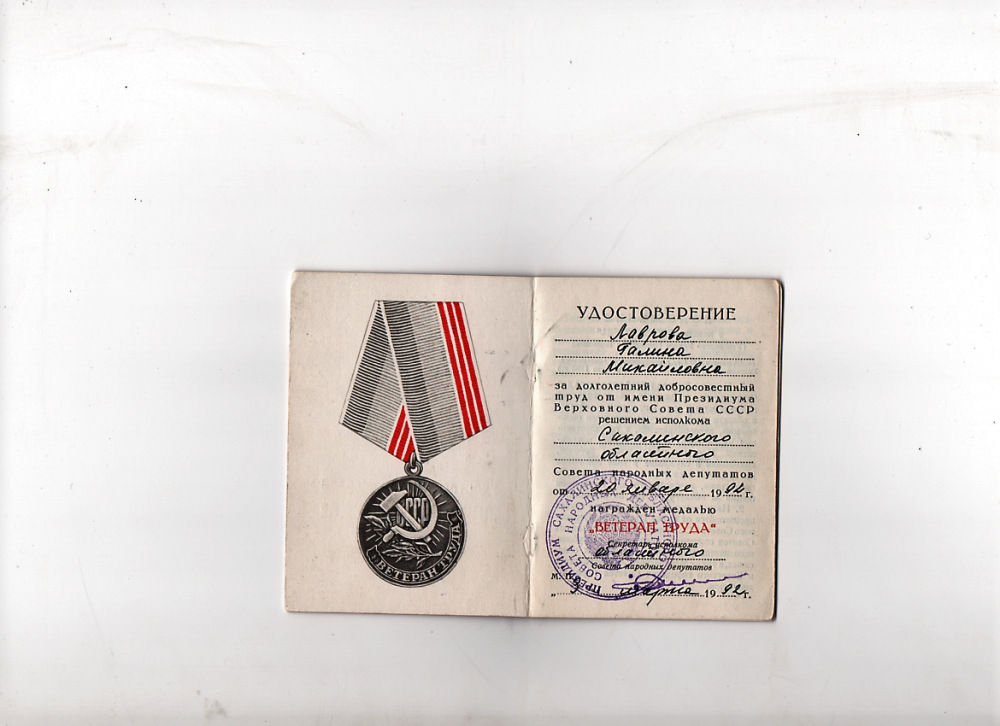 СССР
ВЕТЕРАН ТРУДА
УДОСТОВЕРЕНИЕ
Лаврова
Галина
Михайловна
за долголетний добросовестный
труд от имени Президиума
Верховного Совета СССР
решением исполкома
Сахалинского
областного
Совета народных депутатов
от 20 января 1992 г.
награжден медалью
„ВЕТЕРАН ТРУДА“
Секретарь исполкома
областного
Совета народных депутатов
М.
марта 1992 г.
ПРЕЗИДИУМ САХАЛИНСКОГО ОБЛАСТНОГО
СОВЕТА НАРОДНЫХ ДЕПУТАТОВ